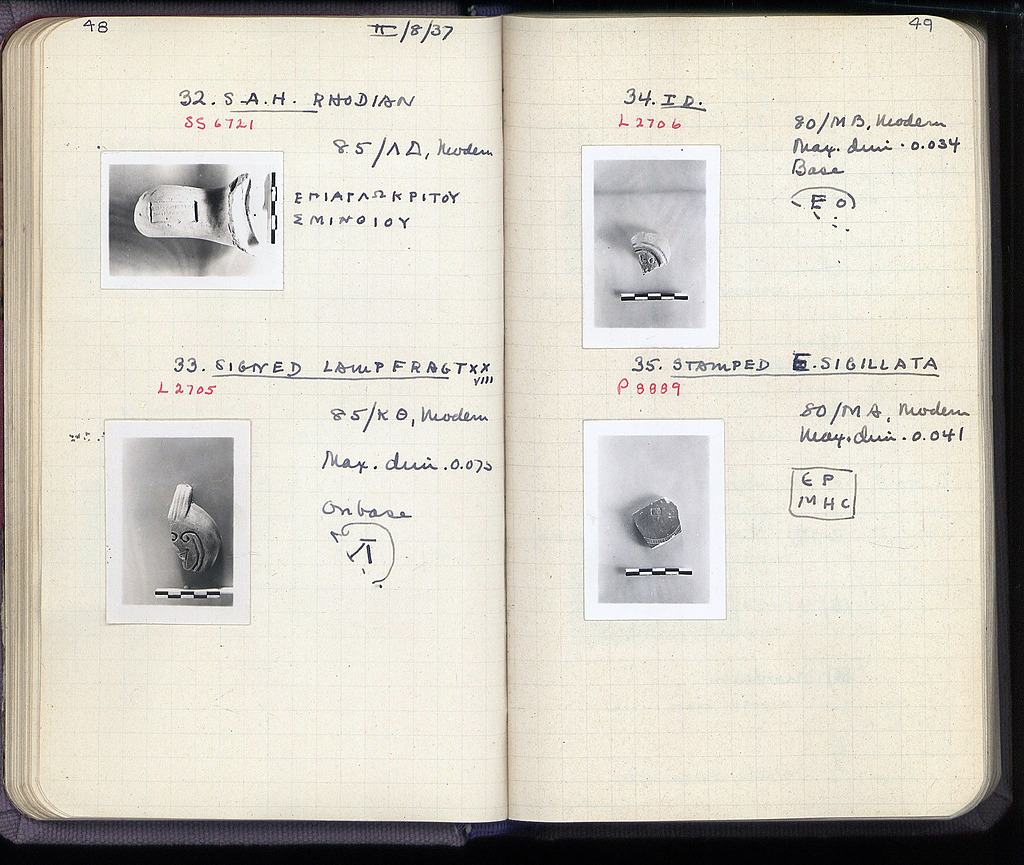 48
II/8/37
32. S.A.H. RHODIAN
SS 6721
85/ΛΔ, Modern
ΕΠΙΑΓΛΩΚΡΙΤΟΥ
ΣΜΙΝΘΙΟΥ
33. SIGNED LAMP FRAGT XX
VIII
L 2705
85/ΚΘ, Modern
Max. dim. 0.075
On base
49
34. ID.
L 2706
80/ΜΒ, Modern
Max. dim. 0.034
Base
E O
35. STAMPED E. SIGILLATA
P 8889
80/ΜΑ, Modern
Max. dim. 0.041
Ε Ρ
Μ Η C